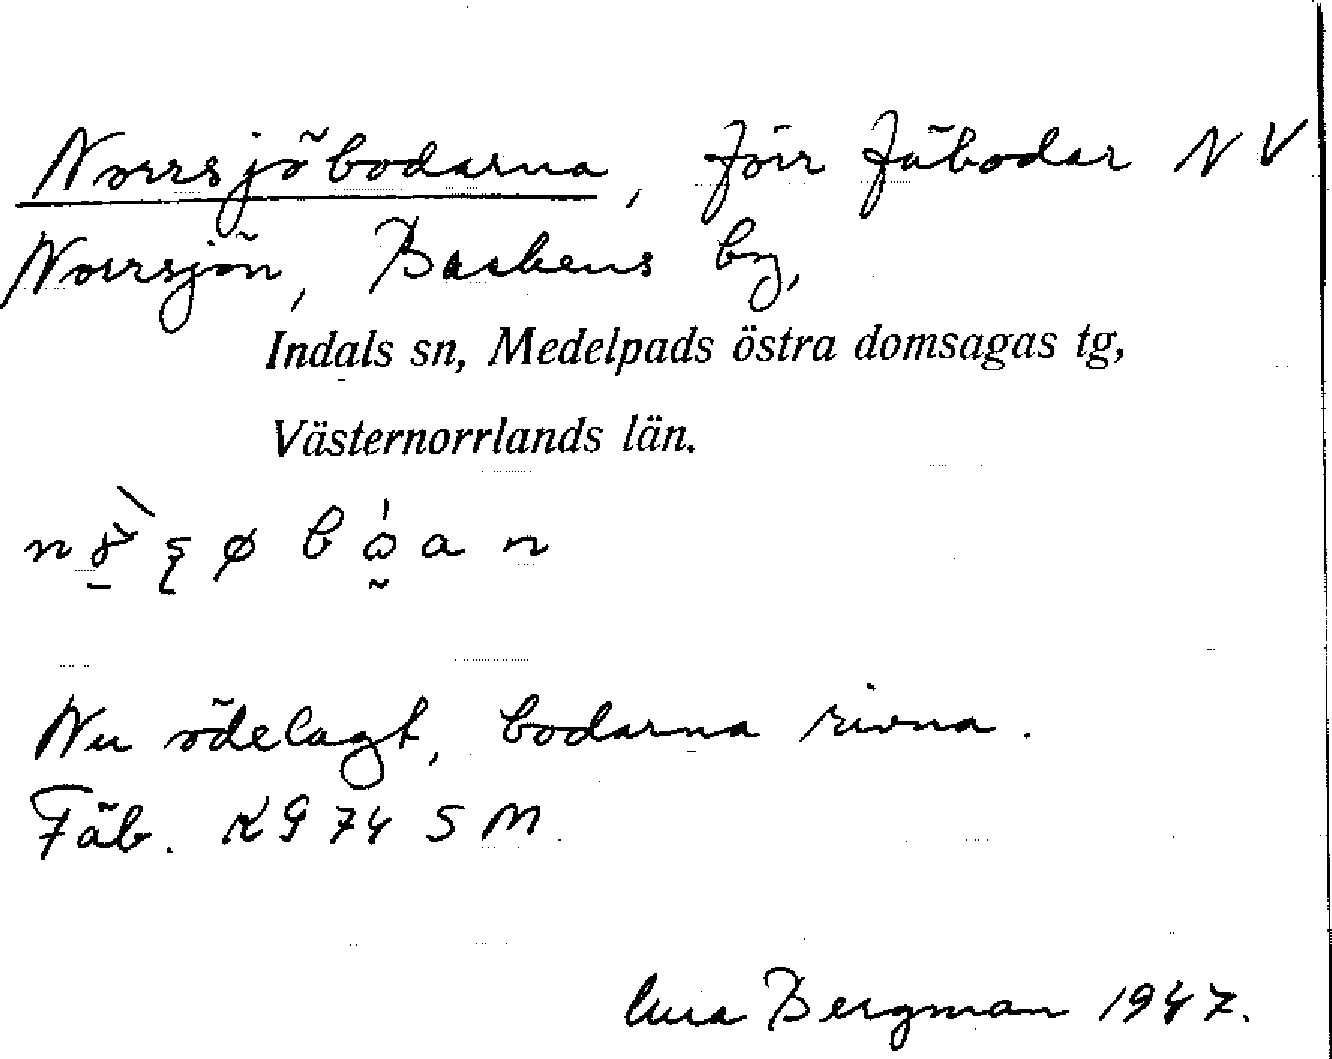 Norrsjöbodarna, förr fäbodar NV
Norrsjön, Backens by,
Indals sn, Medelpads östra domsagas tg,
Västernorrlands län.
Nu ödelagt, bodarna rivna.
Fäb. K9 74 SM.
Bergman 1947.